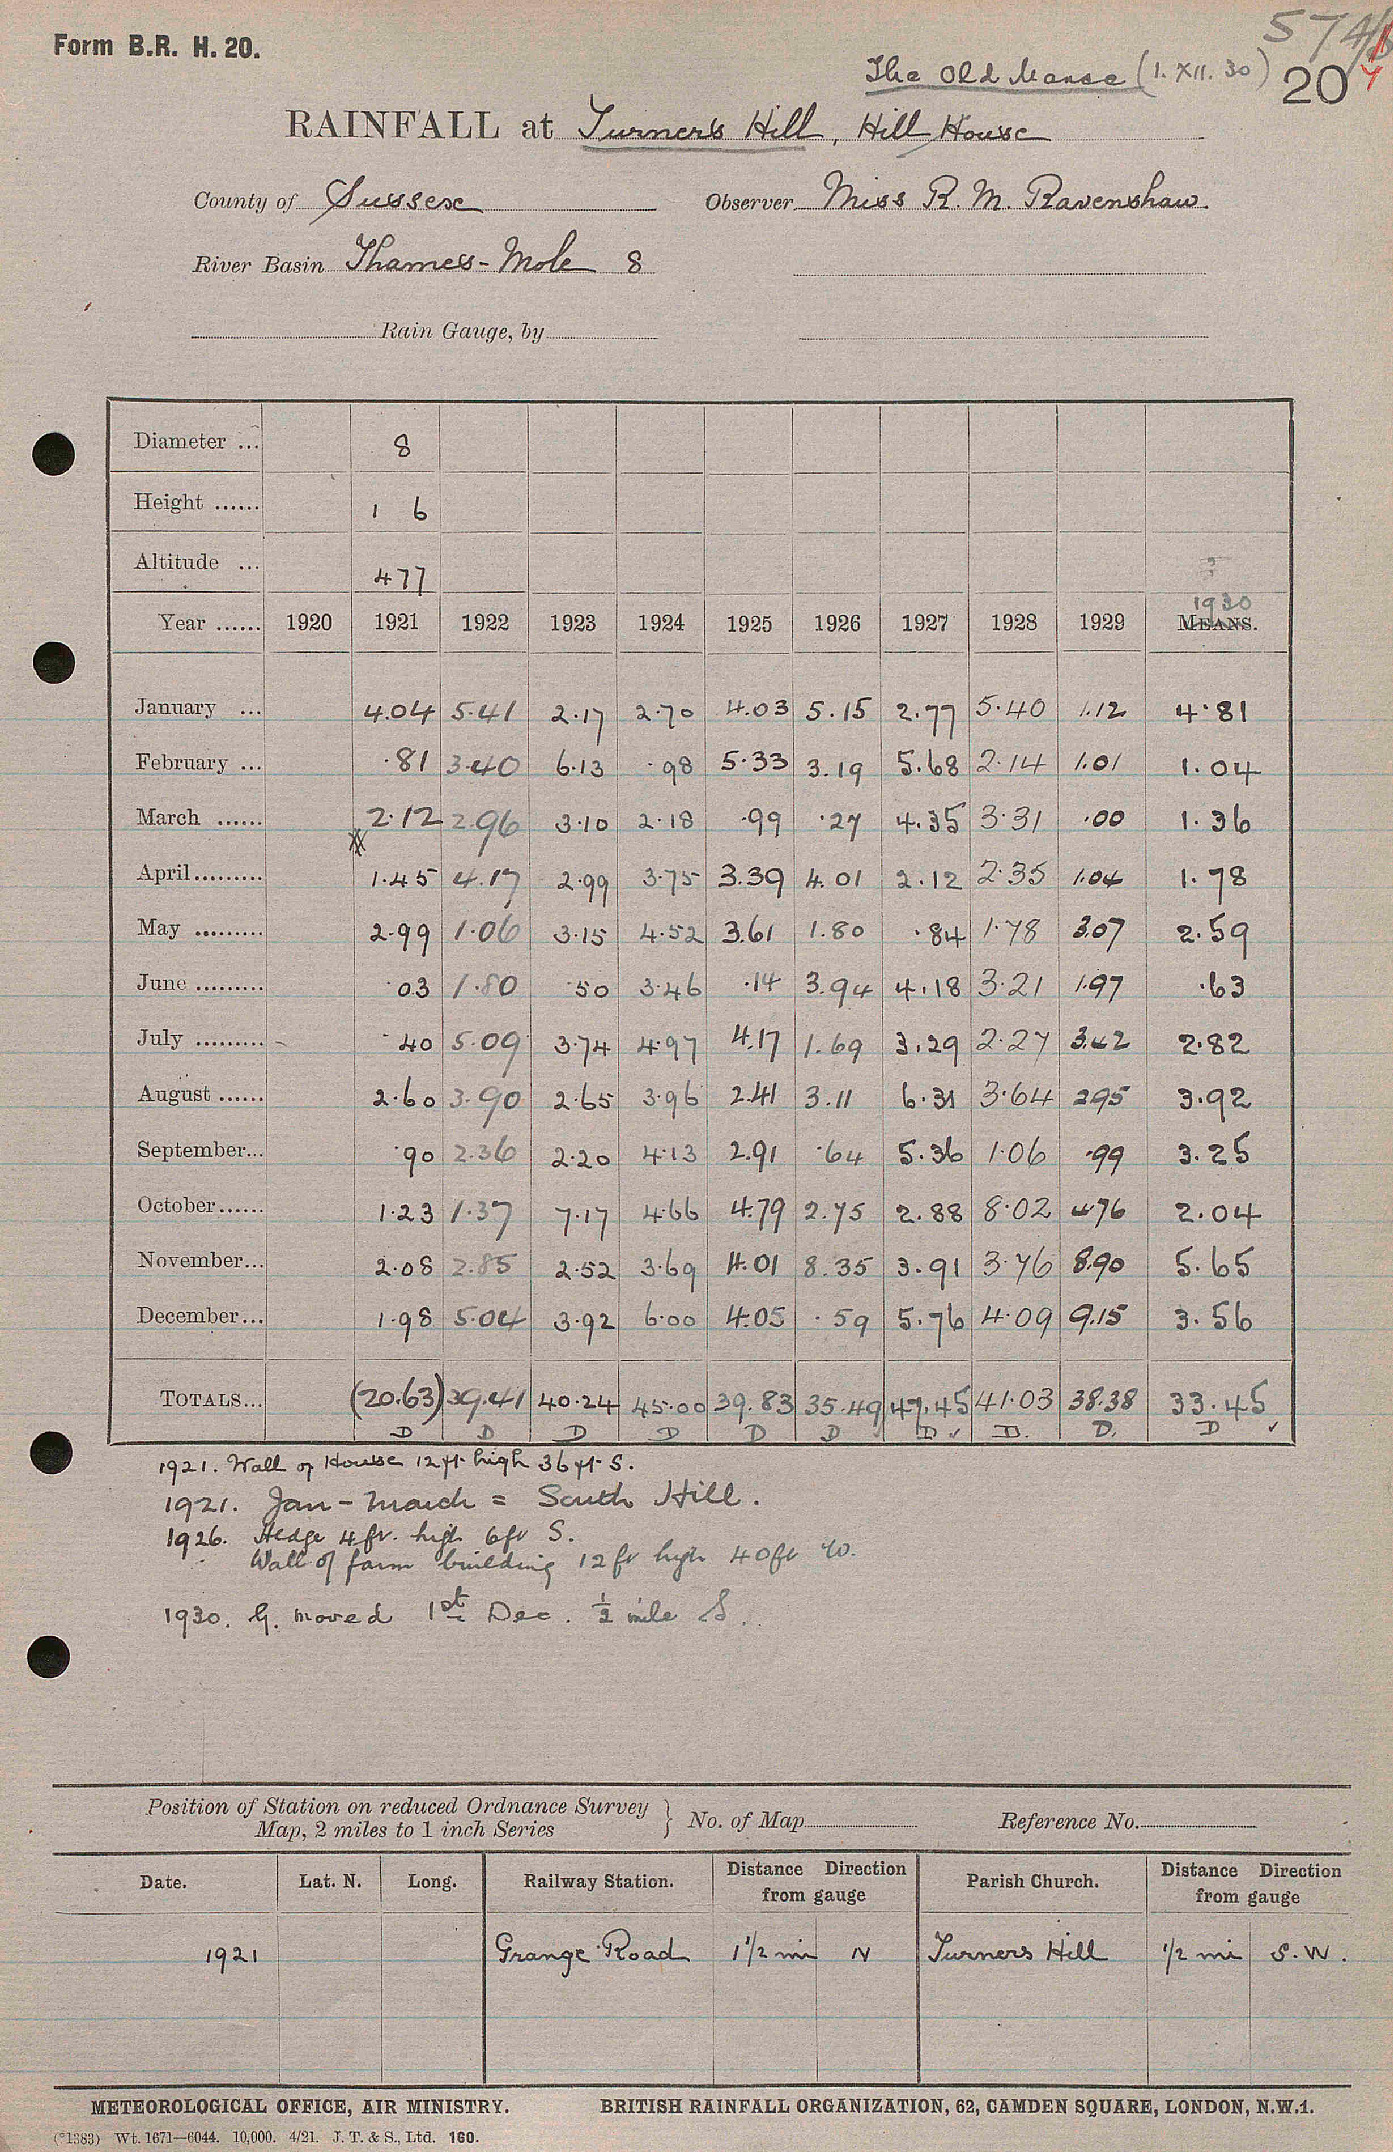 Form B.R. H. 20.
574/1
20
The Old Manse (1. XII. 30)
RAINFALL at Turner's Hill, Hill House
County of Sussex Observer Miss R. M. Ravenshaw.
River Basin Thames - Mole 8
Rain Gauge, by
Diameter ... 8
Height ...... 1 6
Altitude ... 477
1930
Year ...... 1920 1921 1922 1923 1924 1925 1926 1927 1928 1929 MEANS.
January ... 4.04 5.41 2.17 2.70 4.03 5.15 2.77 5.40 1.12 4.81
February ... .81 3.40 6.13 .98 5.33 3.19 5.68 2.14 1.01 1.04
March ...... 2.12 2.96 3.10 2.18 .99 .27 4.35 3.31 .00 1.36
April......... 1.45 4.17 2.99 3.75 3.39 4.01 2.12 2.35 1.04 1.78
May ......... 2.99 1.06 3.15 4.52 3.61 1.80 .84 1.78 3.07 2.59
June ......... .03 1.80 .50 3.46 .14 3.94 4.18 3.21 1.97 .63
July ......... .40 5.09 3.74 4.97 4.17 1.69 3.29 2.27 3.42 2.82
August ...... 2.60 3.90 2.65 3.96 2.41 3.11 6.31 3.64 2.95 3.92
September... .90 2.36 2.20 4.13 2.91 .64 5.36 1.06 .99 3.25
October...... 1.23 1.37 7.17 4.66 4.79 2.75 2.88 8.02 4.76 2.04
November... 2.08 2.85 2.52 3.69 4.01 8.35 3.91 3.76 8.90 5.65
December... 1.98 5.04 3.92 6.00 4.05 .59 5.76 4.09 9.15 3.56
TOTALS... (20.63) 39.41 40.24 45.00 39.83 35.49 47.45 41.03 38.38 33.45
D D D D D D D ✓ D. D. D ✓
1921. Wall of House 12 ft high 36 ft S.
1921. Jan - March = South Hill.
1926. Hedge 4 ft. high 6 ft S.
Wall of farm building 12 ft high 40 ft W.
1930. G. moved 1st Dec. ½ mile S.
Position of Station on reduced Ordnance Survey
Map, 2 miles to 1 inch Series } No. of Map Reference No.
Date. Lat. N. Long. Railway Station. Distance Direction from gauge Parish Church. Distance Direction from gauge
1921 Grange Road 1 1/2 mi N Turners Hill 1/2 mi S.W.
METEOROLOGICAL OFFICE, AIR MINISTRY. BRITISH RAINFALL ORGANIZATION, 62, CAMDEN SQUARE, LONDON, N.W.1.
(*1383) Wt. 1671—6044. 10,000. 4/21. J. T. & S., Ltd. 160.